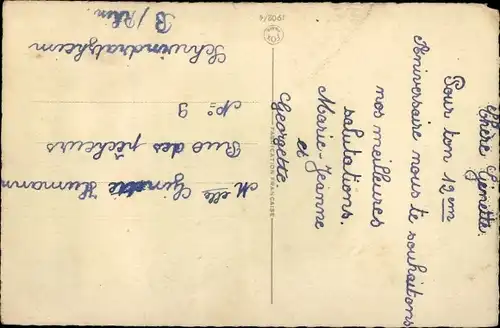 Chère Ginette.
Pour ton 12em
Aniversaire nous te souhaitons
nos meilleures
salutations.
Marie-Jeanne
et
Georgette
FABRICATION FRANÇAISE
Melle Ginette Humann
Rue des pêcheurs
No 9
Schwindratzheim
B/Rhin.
1908/4